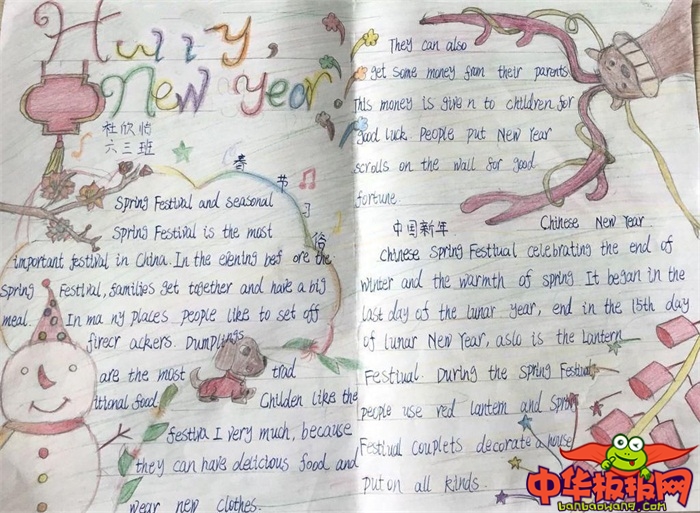 Huliy,
New year
杜欣怡
六三班
春节习俗
Spring Festival and seasonal
Spring Festival is the most
important festival in China. In the evening bef ore the
Spring Festival, families get together and have a big
meal. In ma ny places people like to set off
firecr ackers. Dumplings
are the most trad
itional food. Childen like the
festiva l very much, because
they can have delicious food and
wear new clothes.
They can also
get some money from their parents
This money is give n to children for
good luck. People put New Year
scrolls on the wall for good
fortune
中国新年. Chinese New Year.
Chinese Spring Festival celebrating the end of
winter and the warmth of spring It began in the
last day of the lunar year, end in the 15th day
of lunar New Year, aslo is the Lantern
Festival. During the Spring Festival
people use red lantem and Spring
Festival couplets decorate a house
put on all kinds.
中华板报网
banbaowang.com